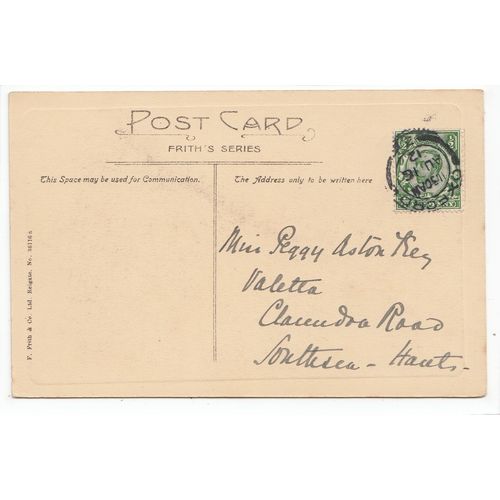 POST CARD
FRITH'S SERIES
This Space may be used for Communication.
The Address only to be written here
Miss Peggy Aston Key
Valetta
Clarendon Road
Southsea - Hants-
F. Frith & Co. Ltd. Reigate. No.
OXFORD
11.30AM
AU 16
12